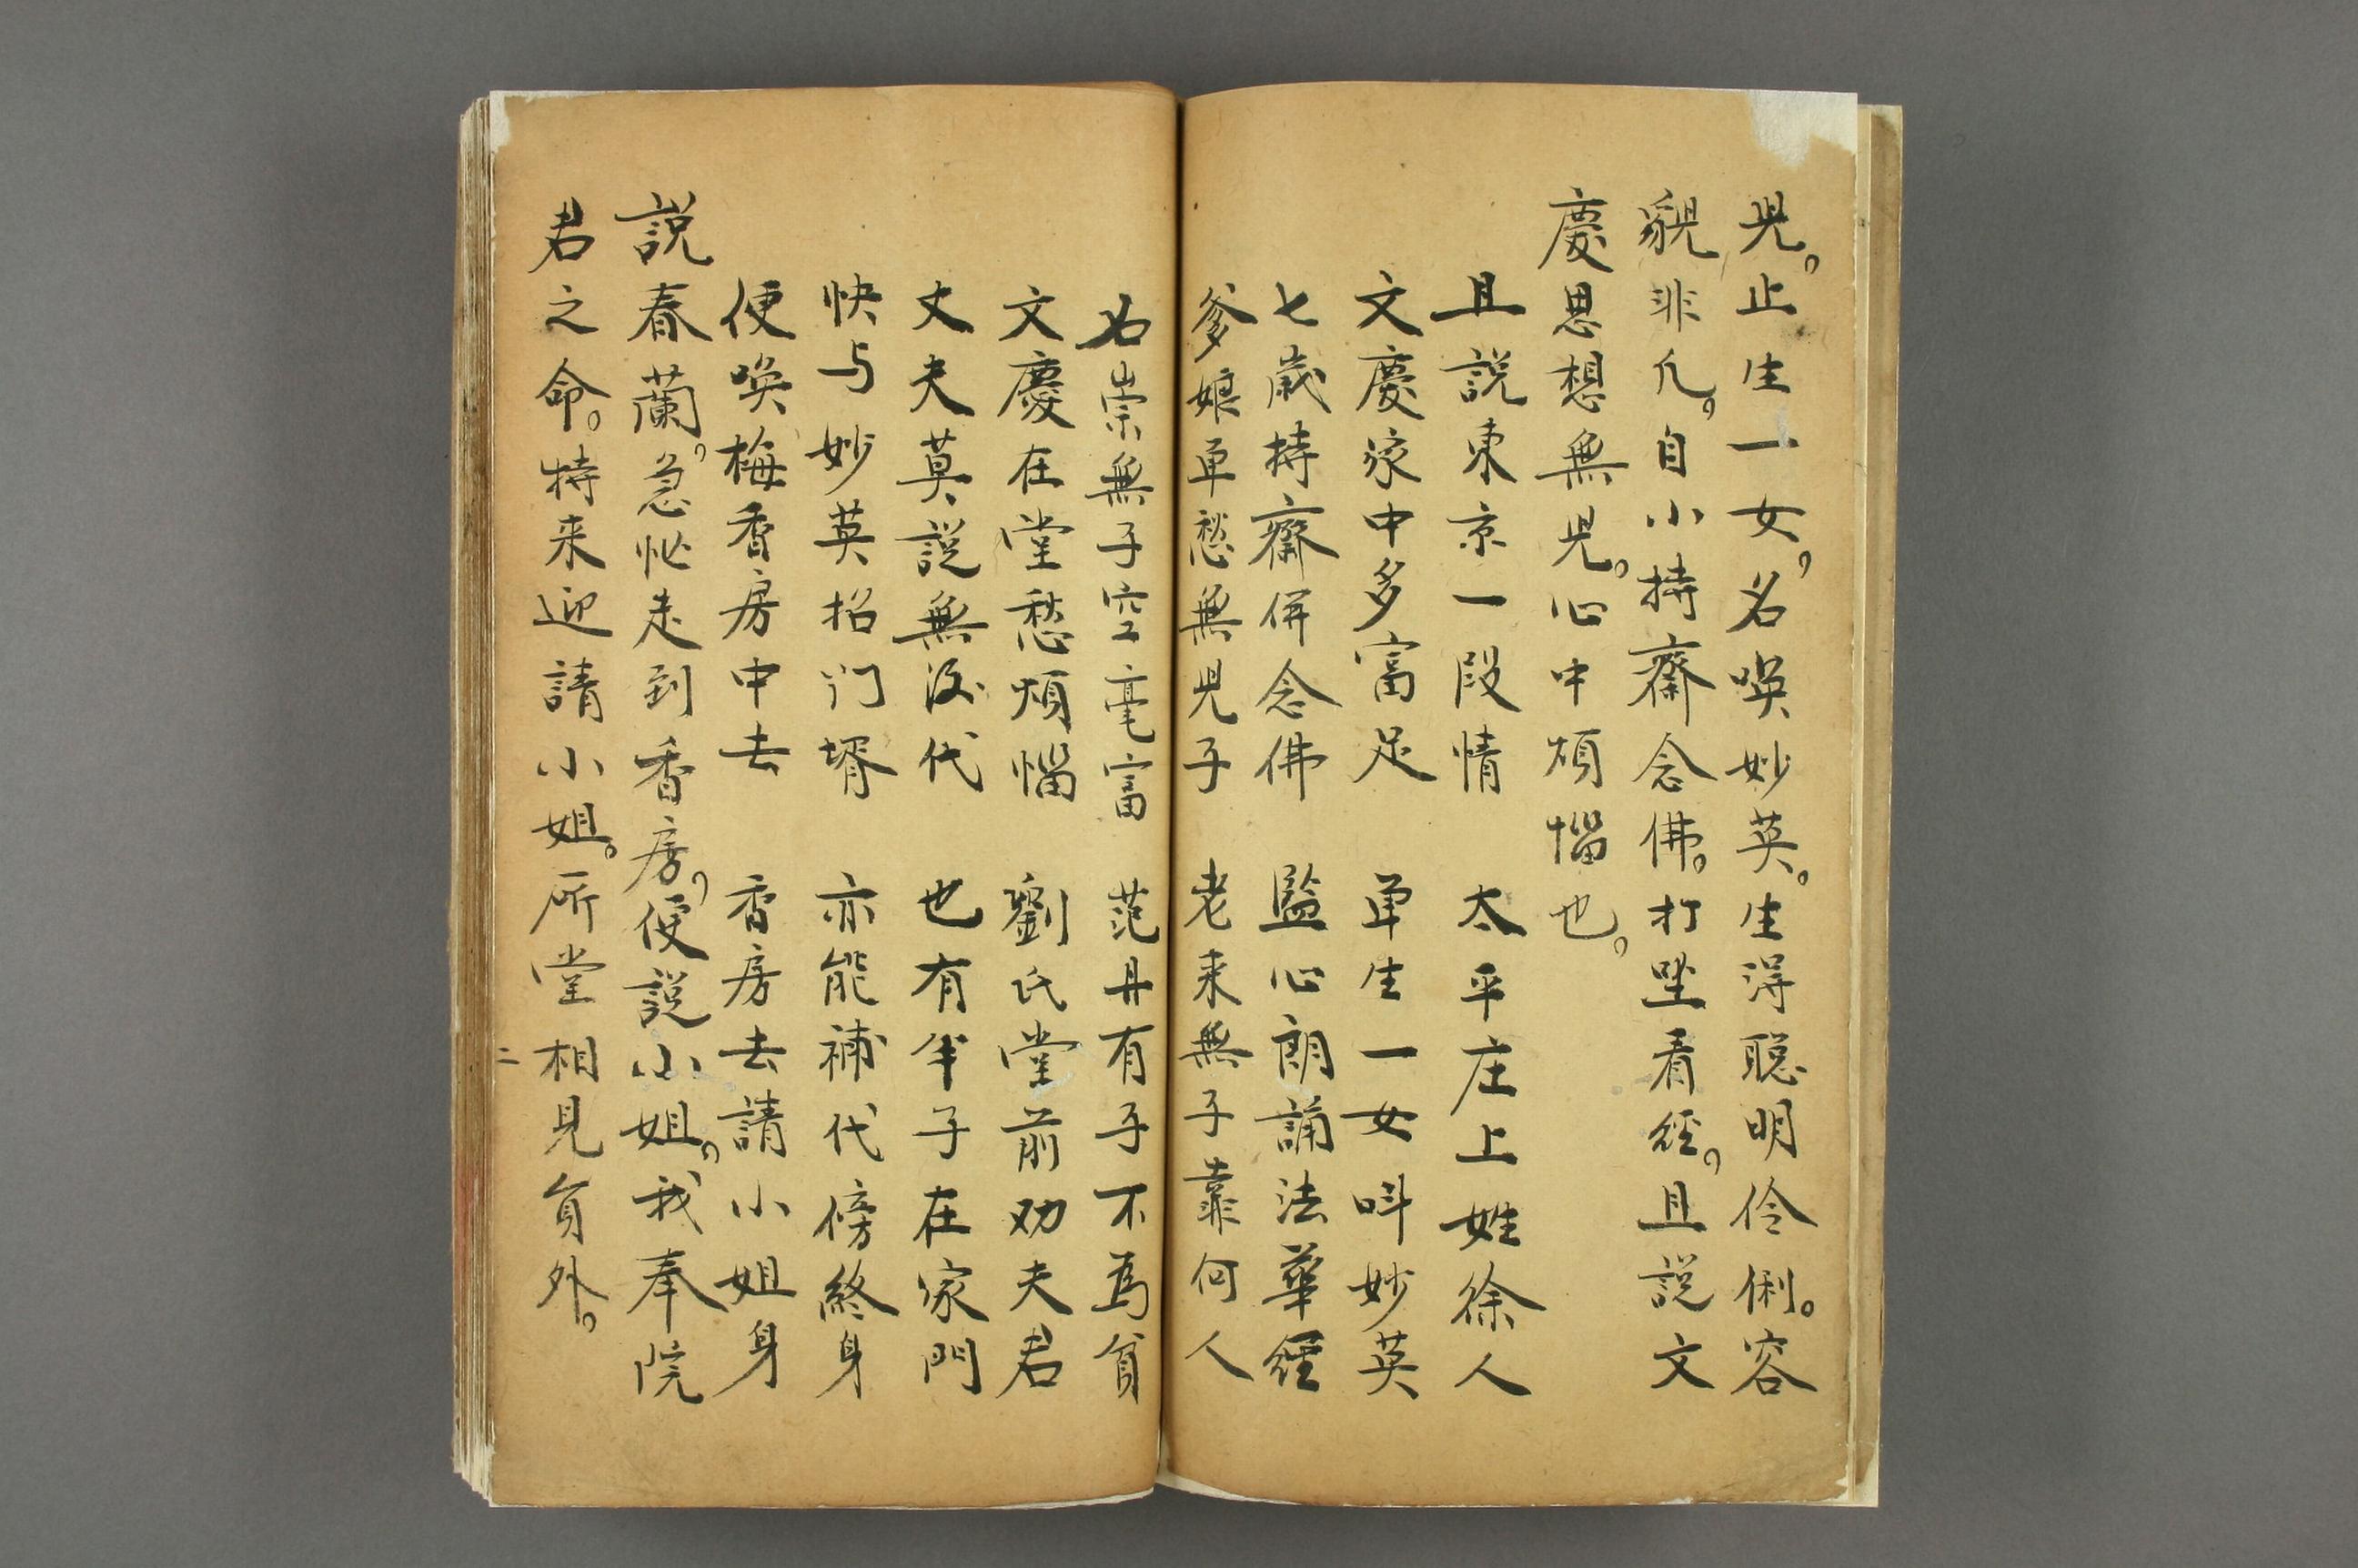 児。止生一女，名喚妙英。生得聰明伶俐。容
貌非凡。自小持齋念佛。打坐看經，且説文
慶思想無児。心中煩惱也。
且説東京一段情　太平庄上姓徐人
文慶家中多富足　单生一女呌妙英
七歳持齋併念佛　監心朗誦法華經
爹娘单愁無児子　老来無子靠何人
石崇無子空毫富　范丹有子不為貧
文慶在堂愁煩惱　劉氏堂前劝夫君
丈夫莫説無後代　也有半子在家門
快与妙英招门壻　亦能補代傍終身
便喚梅香房中去　香房去請小姐身
説春蘭。急忙走到香房，便説小姐，我奉院
君之命。特来迎請小姐。所堂相見貟外。
二